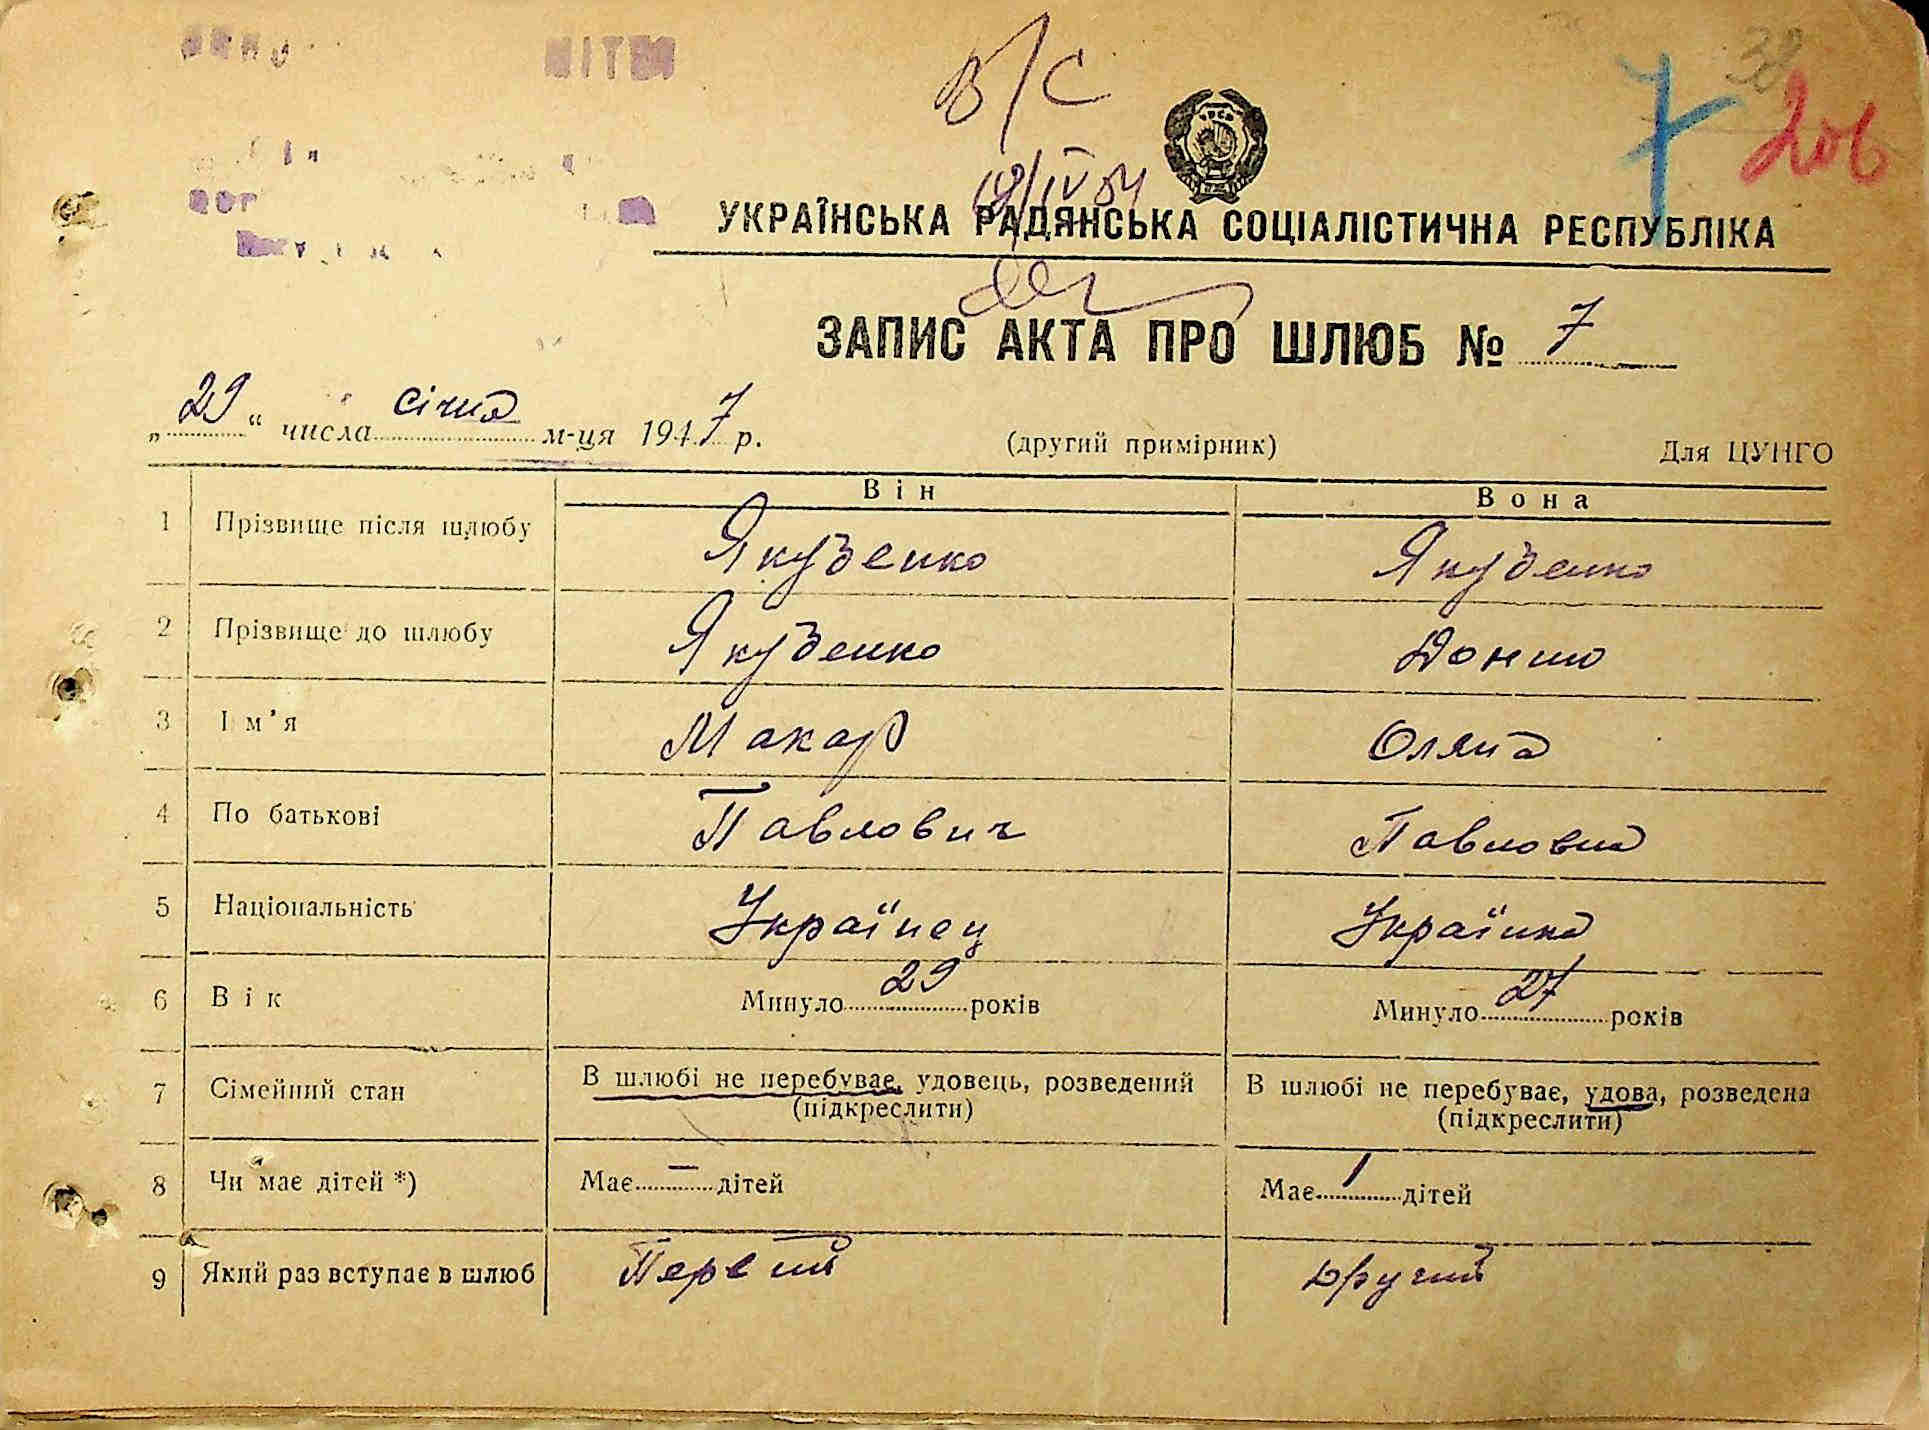 В/С
7
206
19/IV 54
УКРАЇНСЬКА РАДЯНСЬКА СОЦІАЛІСТИЧНА РЕСПУБЛІКА
ЗАПИС АКТА ПРО ШЛЮБ № 7
„29“ числа січня м-ця 1947 р.
(другий примірник)
Для ЦУНГО
Він Вона
1 Прізвище після шлюбу Якубенко Якубенко
2 Прізвище до шлюбу Якубенко
3 Ім'я Макар Оляна
4 По батькові Павлович Павловна
5 Національність Українец Українка
6 Вік Минуло 29 років Минуло 27 років
7 Сімейний стан В шлюбі не перебуває, удовець, розведений В шлюбі не перебуває, удова, розведена
(підкреслити) (підкреслити)
8 Чи має дітей *) Має — дітей Має 1 дітей
9 Який раз вступає в шлюб Первий Другий